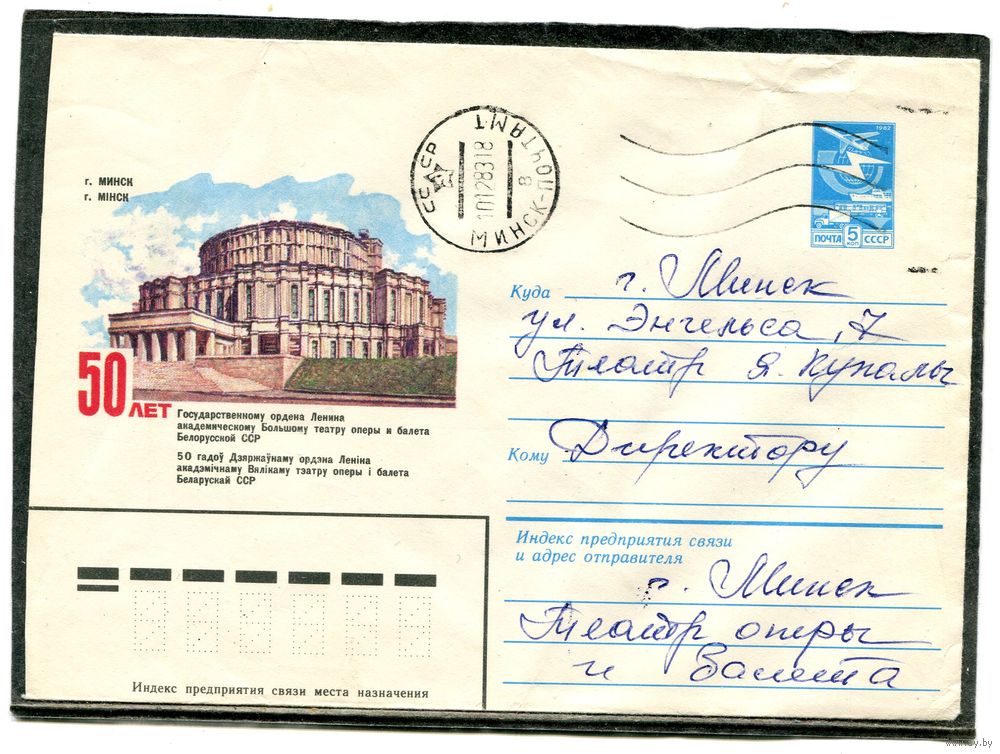 г. МИНСК
г. МІНСК
50 ЛЕТ
Государственному ордена Ленина
академическому Большому театру оперы и балета
Белорусской ССР
50 гадоў Дзяржаўнаму ордэна Леніна
акадэмічнаму Вялікаму тэатру оперы і балета
Беларускай ССР
СССР
10128318
МИНСК-ПОЧТАМТ
8
1982
ПОЧТА 5 КОП СССР
Куда г. Минск
ул. Энгельса, 7
Театр Я. Купалы
Кому Директору
Индекс предприятия связи
и адрес отправителя
г. Минск
Театр оперы
и балета
Индекс предприятия связи места назначения
www.ay.by